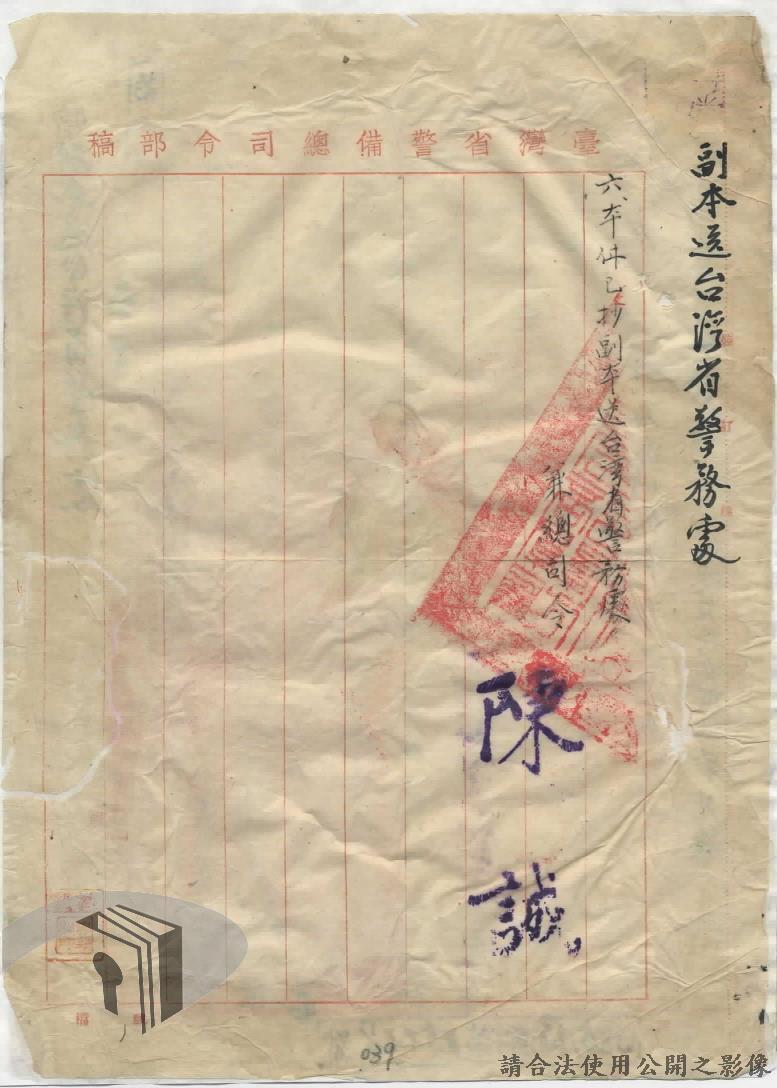 臺灣省警備總司令部稿
副本送台湾省警務處
六、本件已抄副本送台湾省警務處
兼總司令
陳誠
039
請合法使用公開之影像